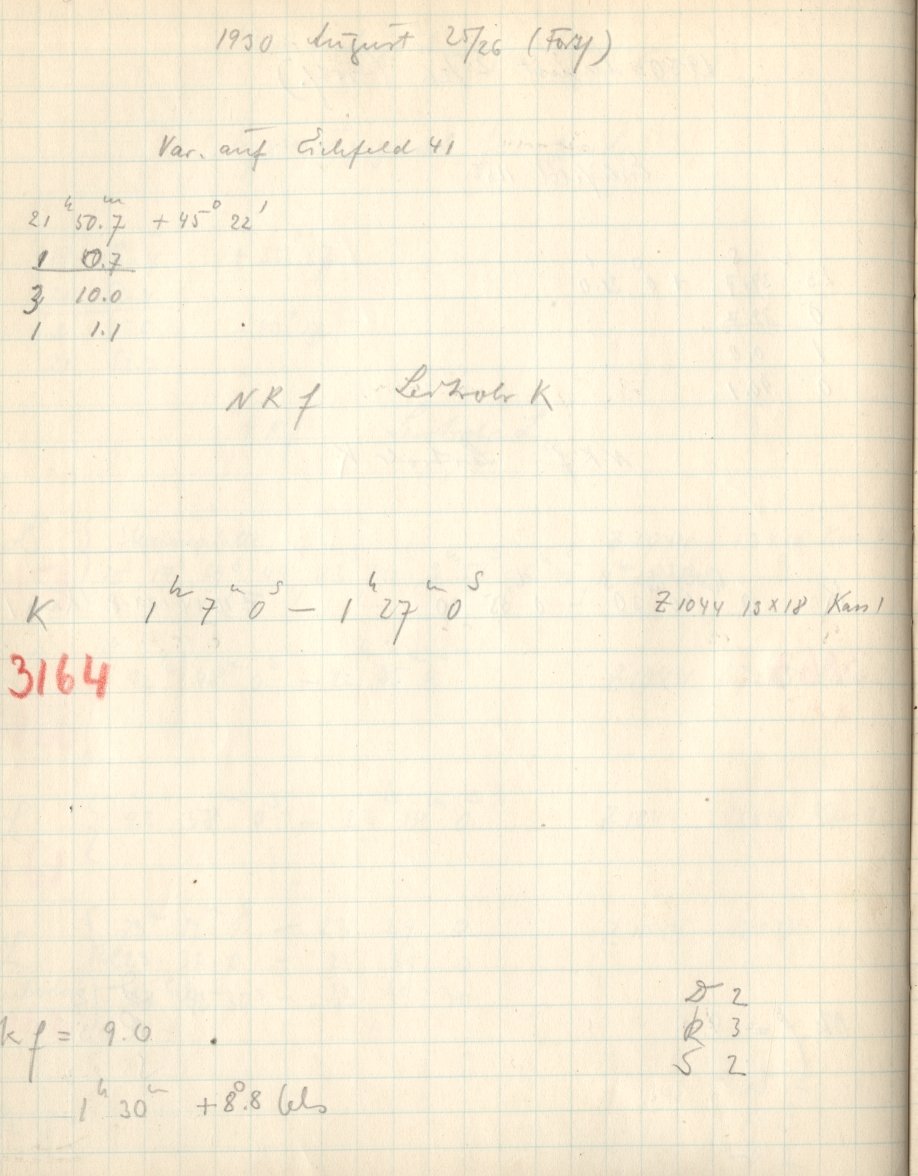 1930 August 25/26 (Forts)
Var. auf Eichfeld 41
21 h 50.7 m + 45° 22'
1 0.7
3 10.0
1 1.1
NRf Leitrohr K
K 1h 7m 0s — 1h 27m 0s Z 1044 13 x 18 Kass 1
3164
D 2
kf = 9.0 R 3
S 2
1h 30m +8°.8 Cels